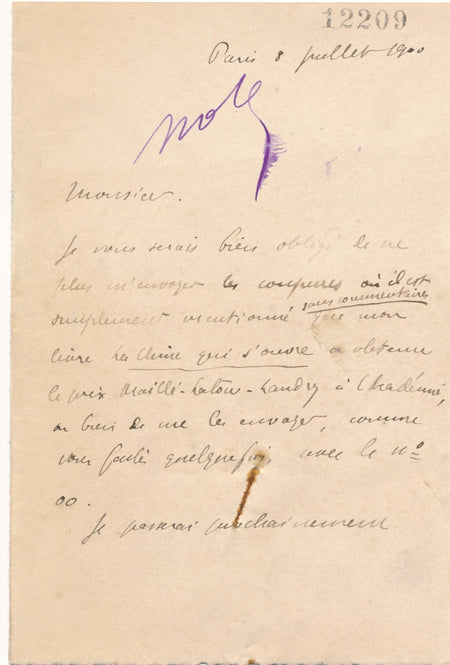 12209
Paris 8 juillet 1900
Noté
Monsieur.
Je vous serais bien obligé de ne
plus m'envoyer les coupures où il est
sans commentaires
simplement mentionné que mon
livre La Chine qui s'ouvre a obtenu
le prix Maillé-Latour-Landry à l'Académie,
ou bien de me les envoyer, comme
vous faites quelquefois avec le nº
00.
Je passerai prochainement